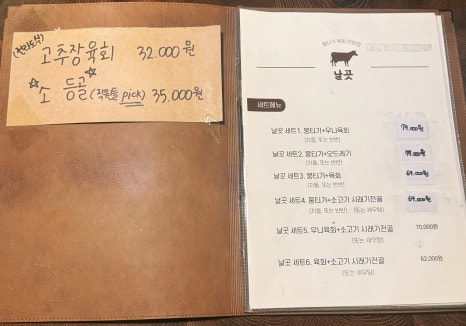 (전라도식)
고추장육회 32.000원
소 등골 (직원들 pick) 35.000원
뭉티기 육회 전문점
날곳
세트메뉴
날곳 세트1. 뭉티기+우니육회 79.000원
(차돌, 또는 반반)
날곳 세트2. 뭉티기+모드레기
(차돌, 또는 반반)
날곳 세트3. 뭉티기+육회 69.000원
(차돌, 또는 반반)
날곳 세트4. 뭉티기+소고기 시래기전골 69.000원
(차돌, 또는 반반) (또는 새우탕)
날곳 세트5. 우니육회+소고기 시래기전골 70,000원
(또는 새우탕)
날곳 세트6. 육회+소고기 시래기전골 62,000원
(또는 새우탕)